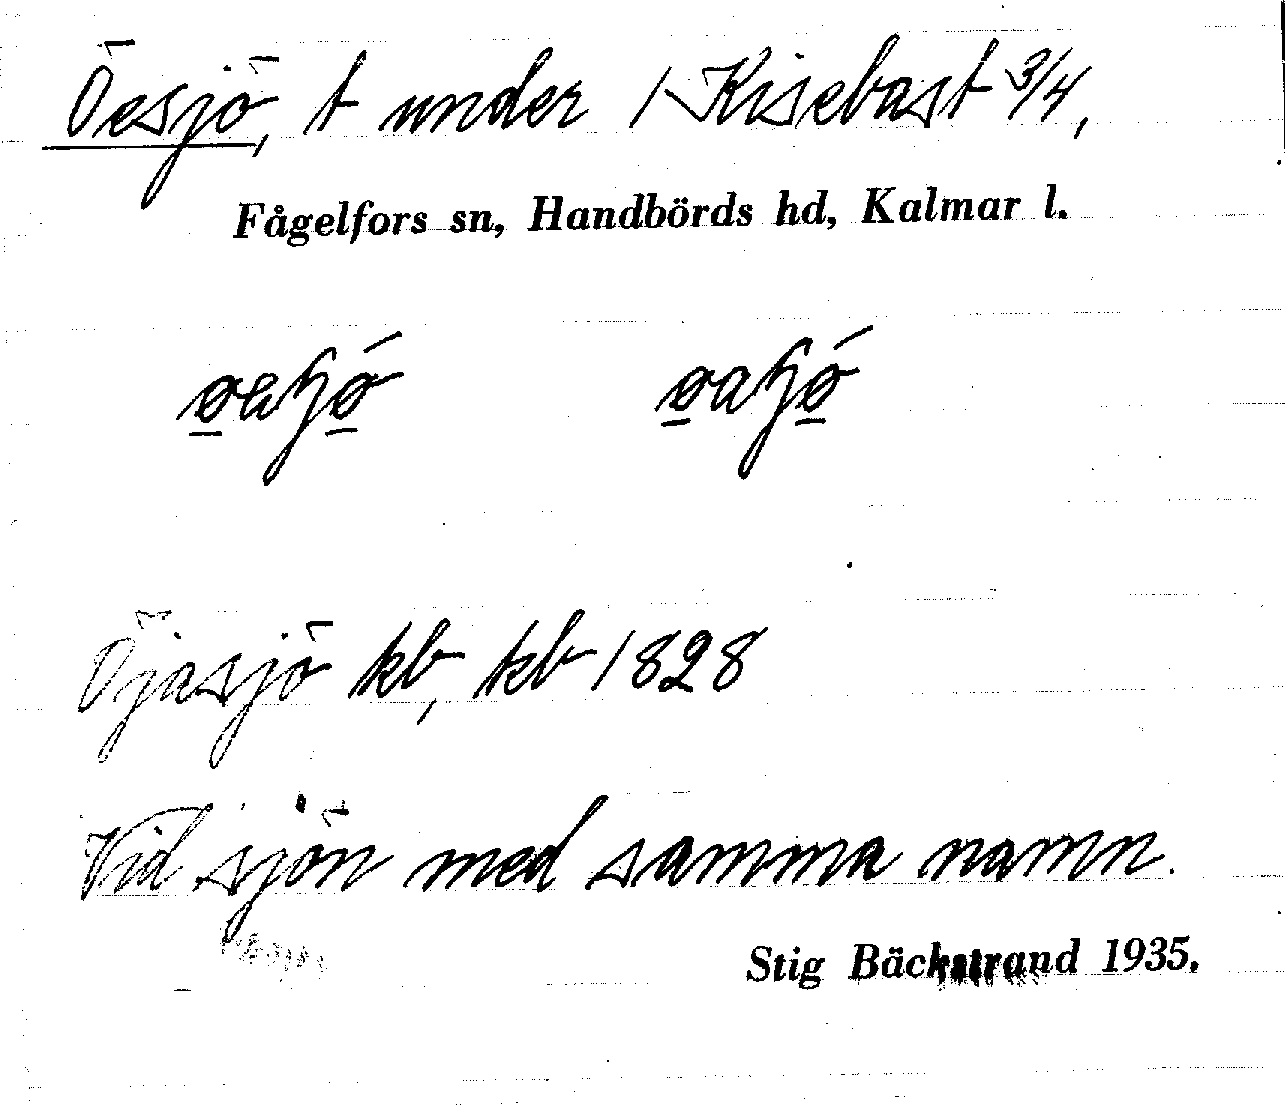 Öesjö, t under 1 Kisebast 3/4,
Fågelfors sn, Handbörds hd, Kalmar l.
Öjasjö kb, kb 1828
Vid sjön med samma namn.
Stig Bäckstrand 1935.